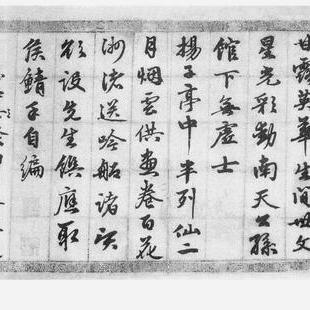 甘露英華生間世文
星光彩動南天公孫
館下無虛士
揚子亭中半列仙二
月烟雲供畫卷百花
洲渚送吟船諸賢
設先生饌應取
侯鯖手自編